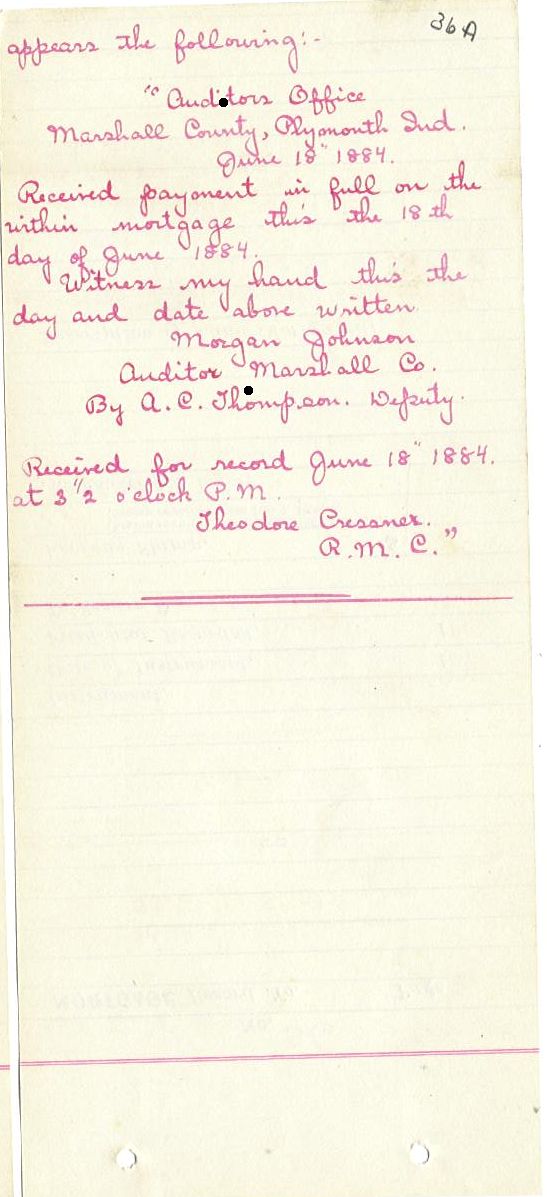 36A
appears the following:-
"Auditors Office
Marshall County, Plymouth Ind.
June 18" 1884.
Received payment in full on the
within mortgage this the 18th
day of June 1884.
Witness my hand this the
day and date above written.
Morgan Johnson
Auditor Marshall Co.
By A. C. Thompson. Deputy.
Received for record June 18" 1884.
at 3 1/2 o'clock P.M.
Theodore Cressner.
R.M.C."